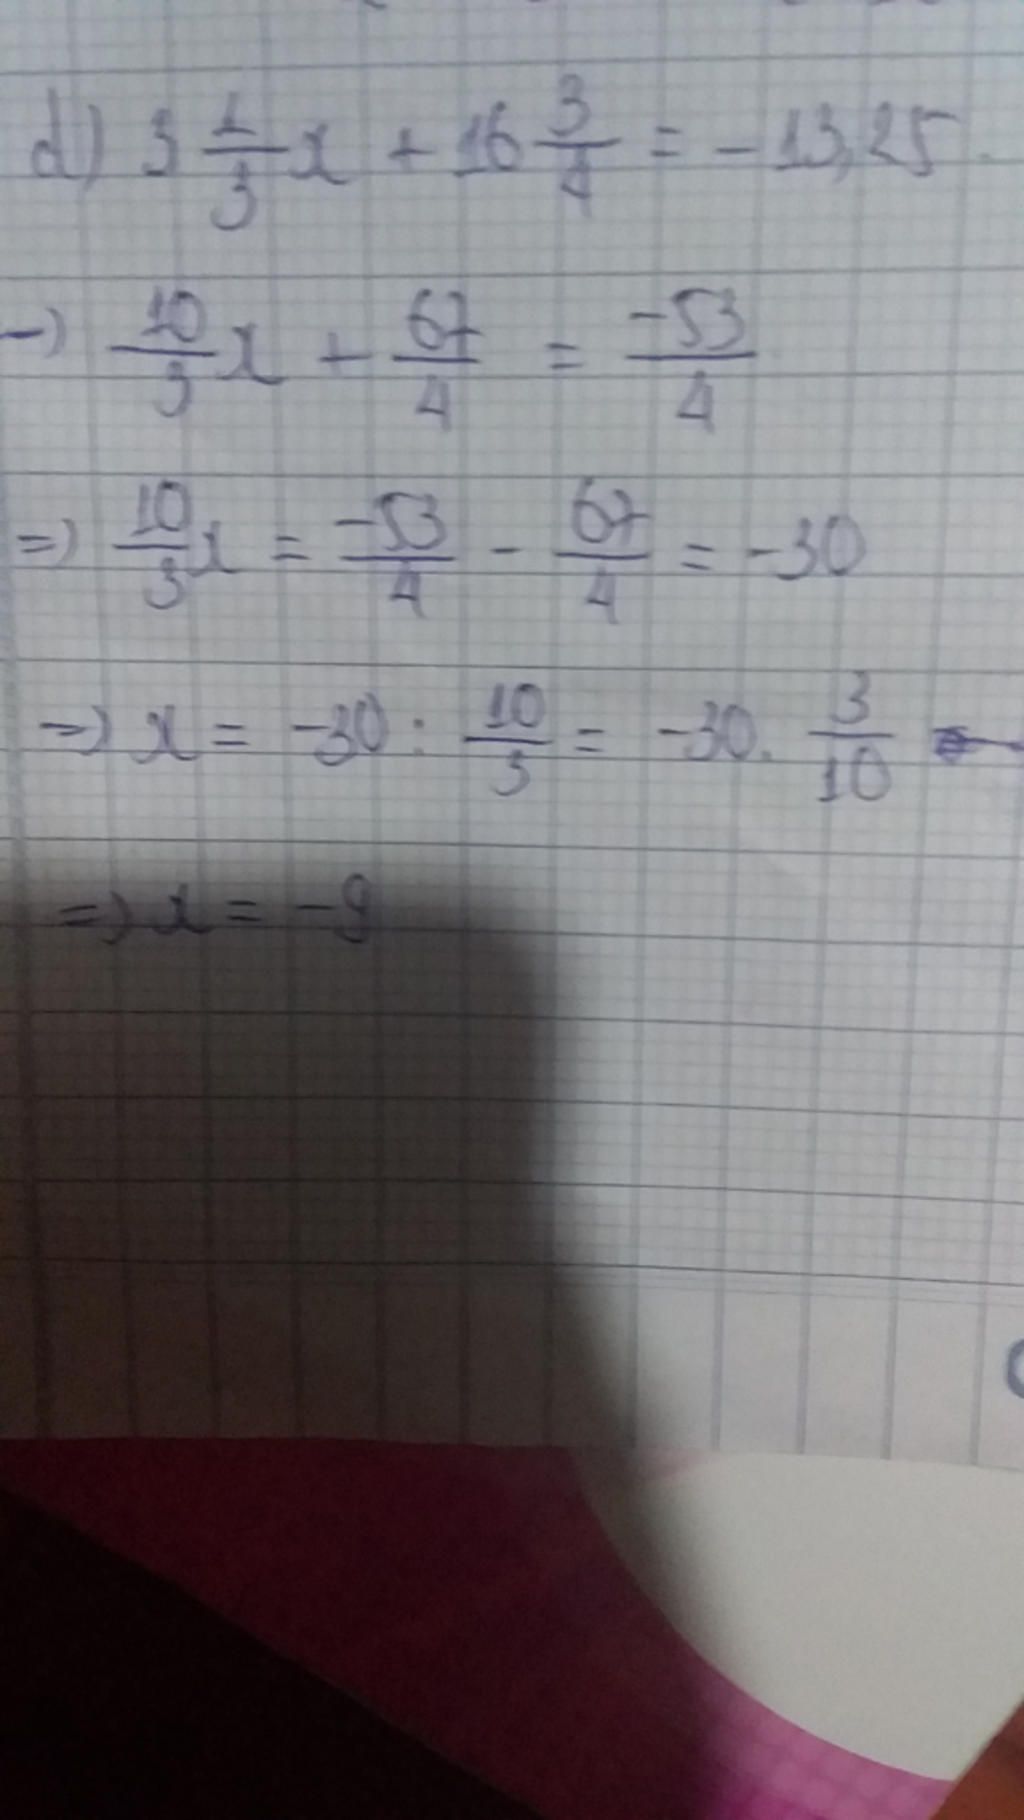 d) 3 1/3 x + 16 3/4 = -13,25
=) 10/3 x + 67/4 = -53/4
=) 10/3 x = -53/4 - 67/4 = -30
=) x = -30 : 10/3 = -30. 3/10
=) x = -9